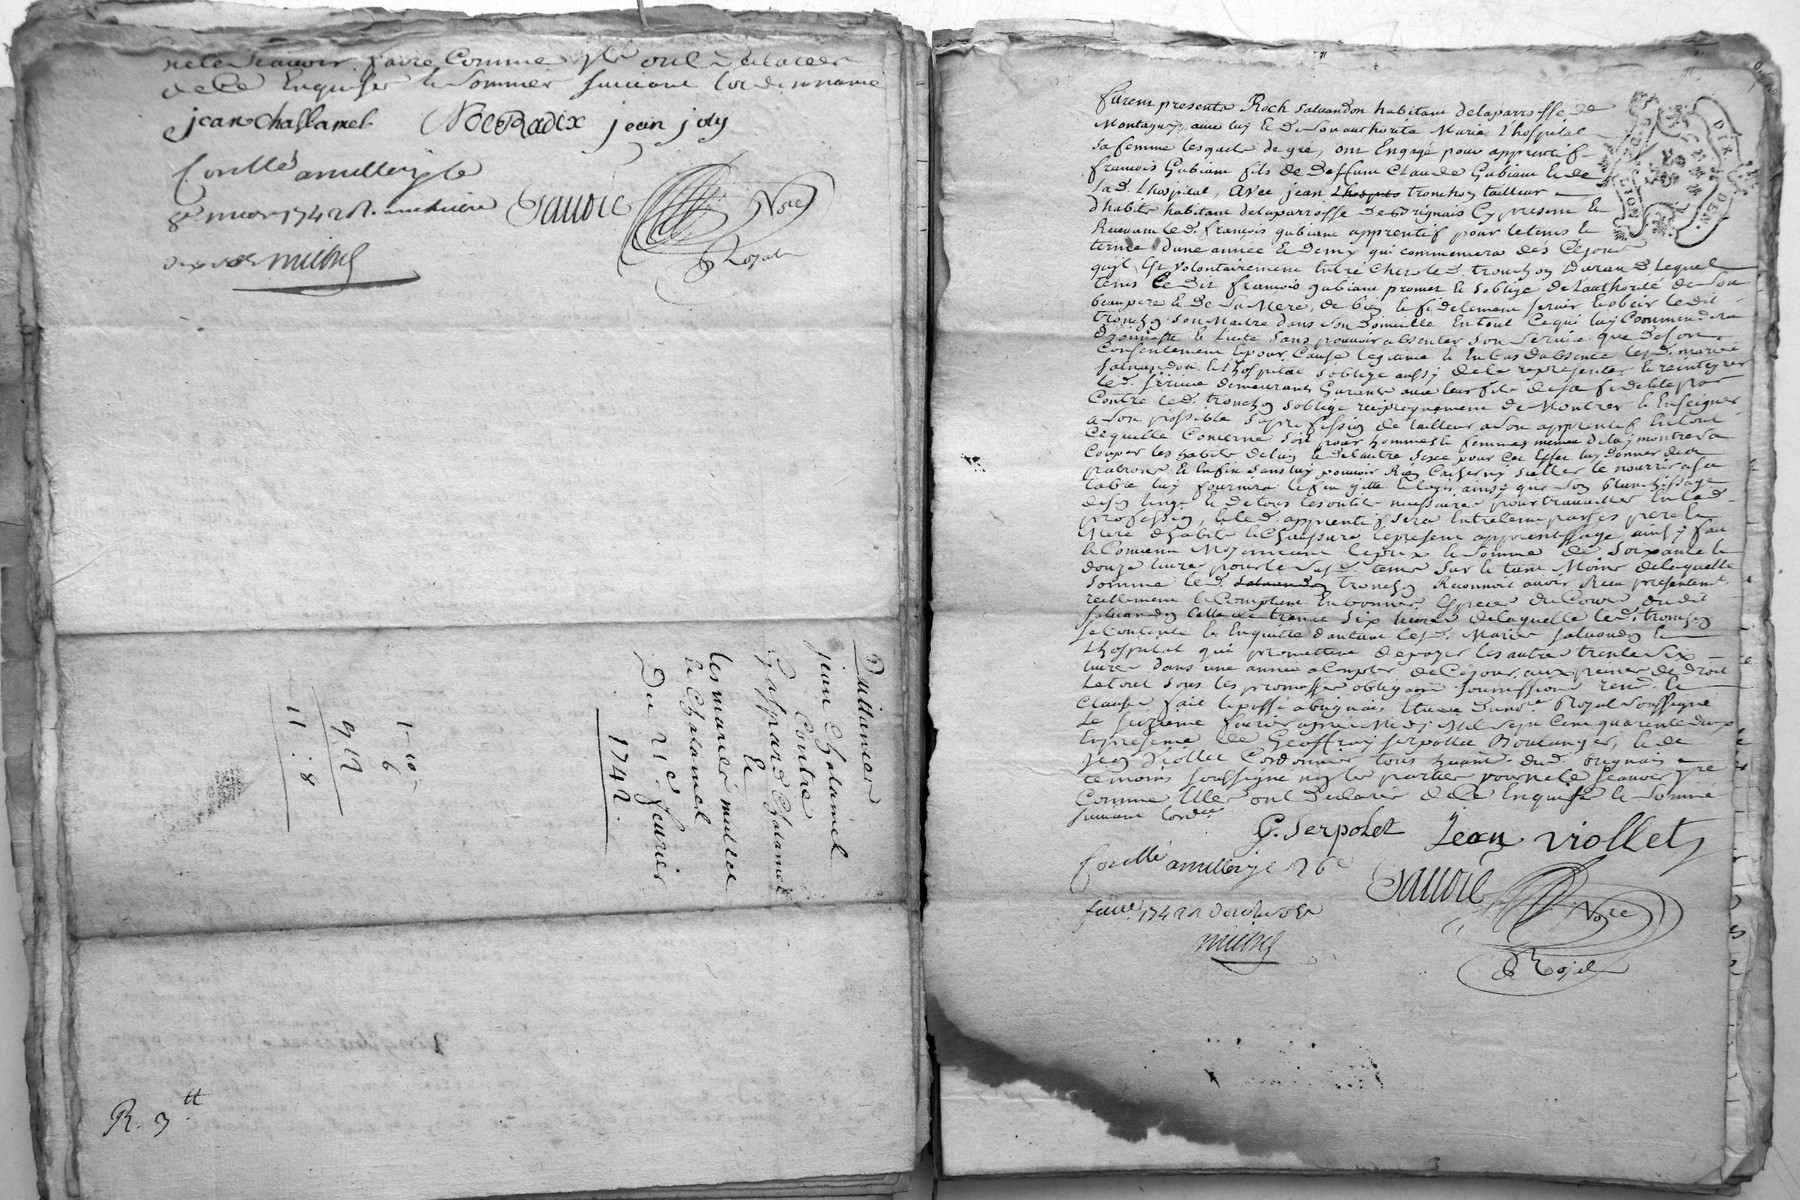 ne le scavoir faire comme ils ont declarés
de ce Enquis et Sommés suivant lordonnance
jean Chaslamel Noe Radix jean joly
Conllé a millery le
8e mars 1742 Sauvie Nore
Royal
Quittance
jean Chalamel
Contre
Gaspard Chalamel
Et
les mariés mullet
et Chalamel
Du 21e feurier
1742.
1 - 10
6
9 12
11 : 8
R. 3 tt
furent presents Roch saluandon habitant de la parroisse de
Montagny, auec luy Et de son authorité Marie L'hospital
sa femme lesquels de gré, ont Engagé pour apprentif
francois Gubian fils de Deffunt Claude Gubian Et de
Lad. Lhospital, Avec jean Lhospita tronchon tailleur
dhabits habitant de la parroisse de Brignais Cy present Et
Receuant led. francois gubian apprentif pour le tems Et
terme dune année Et Demy qui commencera dés Cejour
quil Est volontairement Entré Chés led. tronchon Durant Lequel
tems Ledit francois gubian promet Et soblige de Lauthorité de son
beaupere Et de sa Mere, de bien Et fidelement seruir Et obeir ledit
tronchon son Maitre dans son Domicille En tout Cequi luy Commendera
Dhonneste Et Licite sans pouuoir absenter son seruice que de son
Consentement Et pour Cause legitime Et En cas dabsence lesd. mariés
saluandon Et Lhospital sobligent aussy de le representer Et reintegrer
led. seruice demeurants Garents auec leur fils de sa fidelité par
Contre led. tronchon soblige reciproquement de Montrer Et Enseigner
a son possible sa profession de tailleur a son apprentif En tout
Cequelle Concerne soit pour hommes Et femmes meme de luy montrer a
Couper les habits de lun Et de lautre sexe pour Cet Effet luy donner des
patrons Et Enfin sans luy pouuoir Rien Cacher ny Celler le nourrir a sa
table luy fournira le feu gitte Et logis, ainsy que son blanchissage
de son linge Et de tous les outils necessaires pour trauailler En lad.
profession, Et led. apprentif sera Entretenu par ses pere Et
Mere dhabits Et Chaussure Le present apprentissage ainsy fait
Et Conuenu Moyennant le prix Et somme de soixante Et
douze liures pour le susd. tems sur Et tant Moins de laquelle
somme led. saluandon tronchon Reconnoit auoir Reçu presentement
reellement Et Comptant En bonnes Especes du Cours dudit
saluandon Celle de trente six liures de laquelle led. tronchon
se Contente Et En quitte dautant lesd. Mariés saluandon Et
Lhospital qui promettent de payer les autres trente six
liures dans une année a Compter de Cejour, aux peines de droit
Le tout sous les promesses obligations soumissions renon. Et
Clauses fait Et passé a brignais Etude du not.re Royal soussigné
Le seizieme feurier aprés Midy Mil sept Cent quarente deux
En presence de Geoffroy serpollet Boulanger, Et de
Jean Viollet Cordonnier tous habit. dud. brignais
temoins soussignés non les parties pour ne le scauoir faire
Comme Elles ont Declaré de ce Enquises Et Sommé
suivant lord.ce
G. Serpolet Jean viollet
Conllé a millery le 26e
feur. 1742 Sauvie Nore
Royal